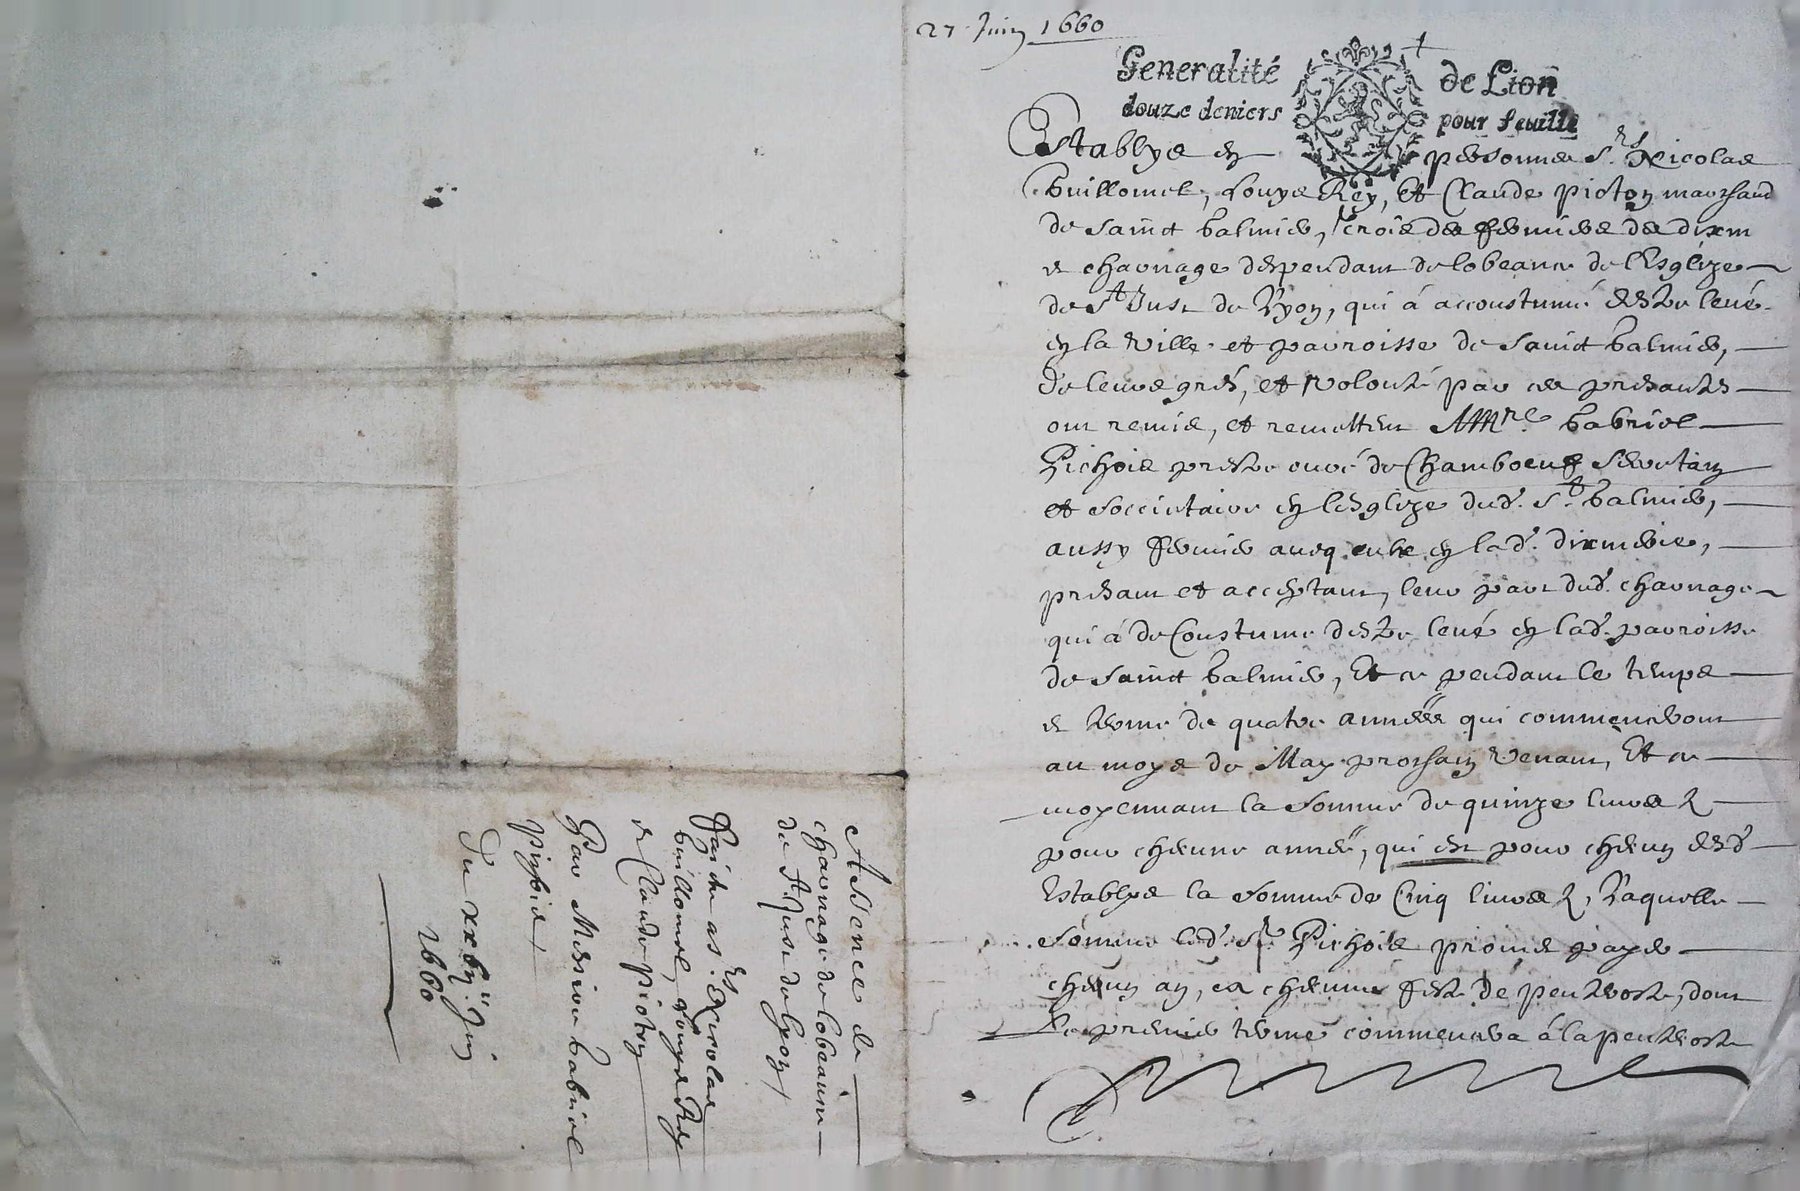 27 Juin 1660
Generalité de Lion
douze deniers pour feuille
Establys en personnes Srs Nicolas
Guillomet, Louys Rey, et Claude Pioton marchand
de Sainct Galmier, trois des fermiers des dixm
et charnage despendant de lobeance de l'Esglize
de St Just de Lyon, qui à accoustumé destre levé
en la ville et parroisse de Sainct Galmier,
de leurs grés, et volonté par ces presantes
ont remis, et remettent A Mre Gabriel
Pichois prestre curé de Chamboeuf Secretain
et Soccietaire en lesglize dud. St Galmier,
aussy fermier avecq eulx en lad. dixmerie,
presant et acceptant, leur part dud. charnage
qui à de Coustume destre levé en lad. parroisse
de Sainct Galmier, Et ce pendant le temps
et terme de quatre années qui commenceront
au moys de May prochain venant, Et ce
moyennant la Somme de quinze livres
pour chacune année, qui est pour chacun desd.
Establys la Somme de Cinq livres, Laquelle
Somme led. Sr Pichois promet payer
chacun an, à chacune feste de pentecoste, dont
le premier terme commencera à la pentecoste
Assence de
charnage de lobeance
de St Just de Lyon
Faicte as. Srs Nicolas
Guillomet, Louys Rey
et Claude Pioton
Par Messire Gabriel
Pichois
Du xxvij Juin
1660